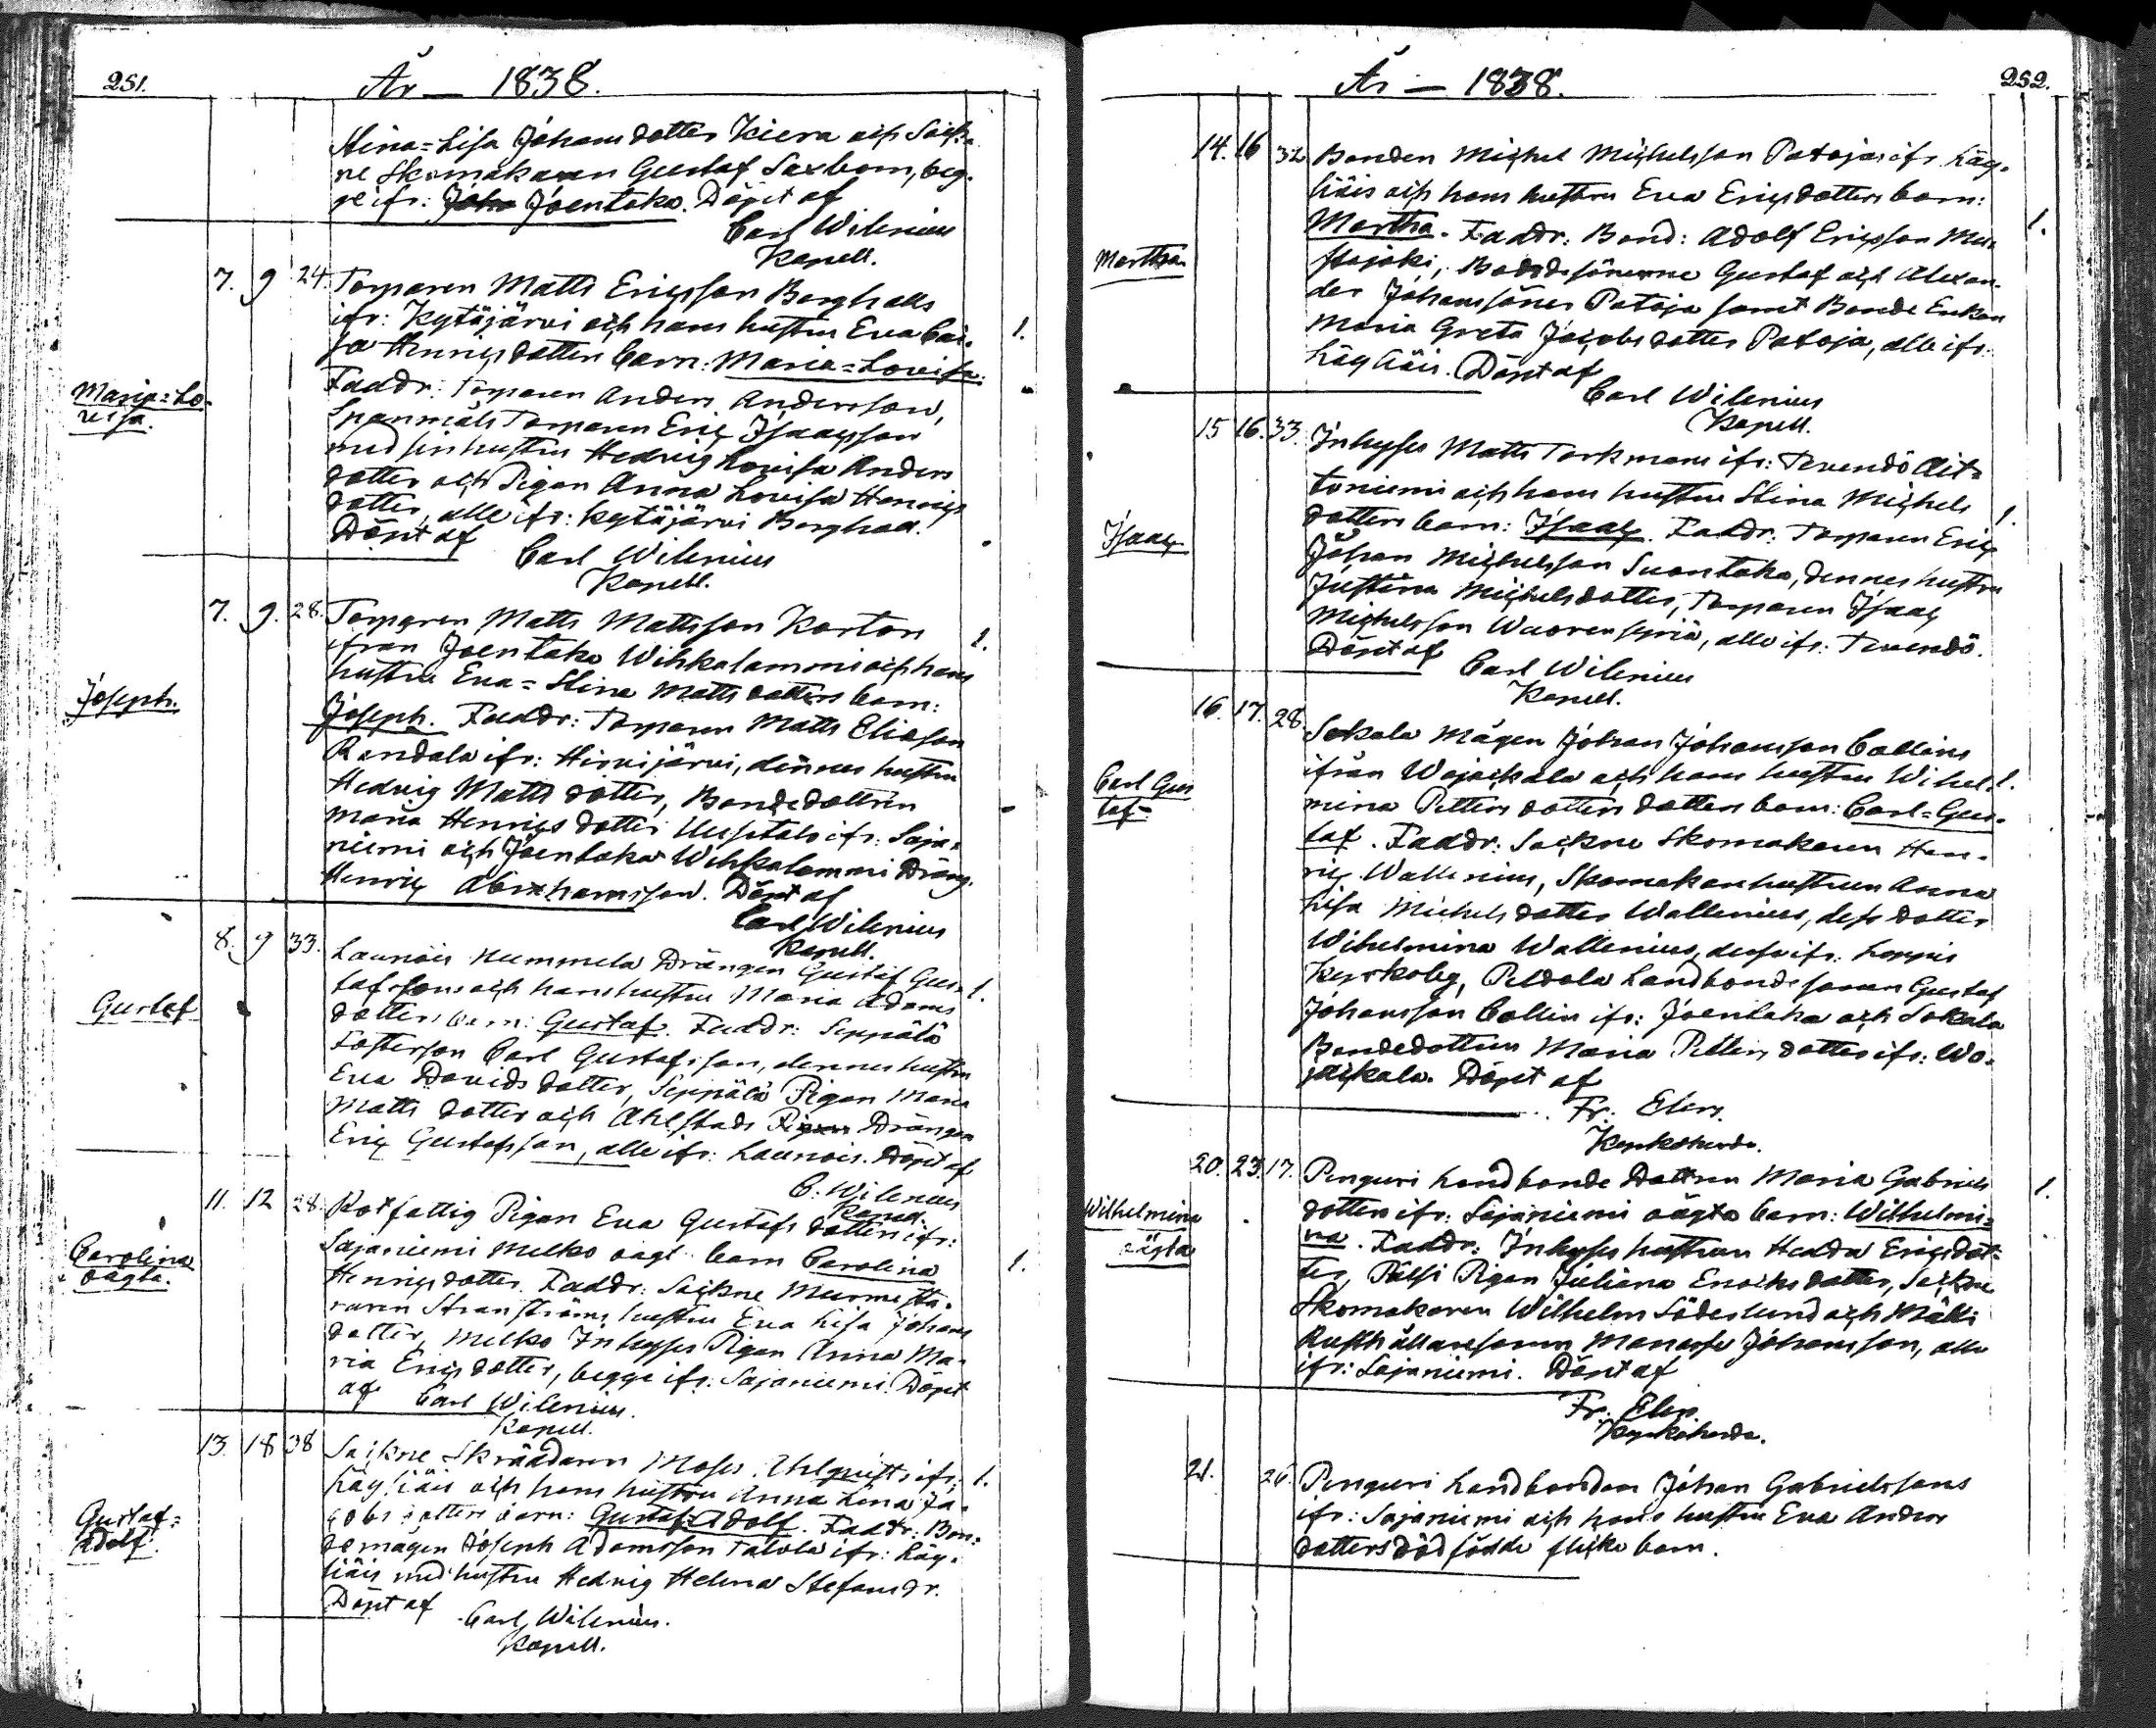 251.
År — 1838.
Stina=Lisa Johansdotter Kiera och Sock=
ne Skomakaren Gustaf Saxbom, beg=
ge ifr: Joentaka. Döpt af
Carl Wilenius
Kapell.
7. 9 24. Torparen Matts Ericsson Borghalls
ifr: Kytäjärvi och hans hustru Eva Cai= 1.
sa Henricsdotters barn: Maria=Lovisa.
Maria=Lo=
visa.
Faddr: Torparen Anders Andersson,
Torparen Eric Isaacsson
med sin hustru Hedvig Lovisa Anders
dotter och Pigan Anna Lovisa Henrics
dotter, alle ifr: Kytäjärvi Borghall.
Döpt af
Carl Wilenius
Kapell.
7. 9. 28. Torparen Matts Mattsson Karton 1.
ifrån Joentaka Wihkalammi och hans
hustru Eva=Stina Mattsdotters barn:
Joseph.
Joseph. Faddr: Torparen Matts Eliasson
Randala ifr: Hirvijärvi, dennes hustru
Hedvig Mattsdotter, Bondedottren
Maria Henricsdotter Uusitalo ifr: Saja=
niemi och Joentaka Wihkalammi Dräng.
Henric Abrahamsson. Döpt af
Carl Wilenius
Kapell.
8. 9 33. Launois Nummela Drängen Gustaf Gus= 1.
tafssons och hans hustru Maria Adams
Gustaf
dotters barn: Gustaf. Faddr: Seppälä
Fosterson Carl Gustafsson, dennes hustru
Eva Davidsdotter, Seppälä Pigan Maria
Matts dotter och Ahlstads Drängen
Eric Gustafsson, alle ifr: Launois. Döpt af
C. Wilenius
Kapell.
11. 12 28. Rotfattig Pigan Eva Gustafs dotters ifr:
Carolina
oägta.
Sajaniemi Melko oägt. barn Carolina 1.
Henricsdotter. Faddr: Sockne Murmesta=
raren Stranströms hustru Eva Lisa Johans
dotter, Melko Inhyses Pigan Anna Ma=
ria Ericsdotter, begge ifr: Sajaniemi. Döpt
af Carl Wilenius.
Kapell.
13. 18 38 Sockne Skräddaren Moses Uhlquists ifr: 1.
Läyliäis och hans hustru Anna Lena Ja=
Gustaf=
Adolf.
cobsdotters barn: Gustaf Adolf. Faddr: Bon=
demågen Joseph Adamsson Talola ifr: Läy=
liäis med hustru Hedvig Helena Stefansdr.
Döpt af Carl Wilenius.
Kapell.
År — 1838.
252.
14. 16 32 Bonden Michel Michelsson Patojas ifr. Läy=
liäis och hans hustru Eva Ericsdotters barn: 1.
Martha
Martha. Faddr: Bond: Adolf Ericsson Mus=
tajoki, Bondesönerne Gustaf och Alexan=
der Johanssöner Patoja samt Bonde Enkan
Maria Greta Jacobsdotter Patoja, alle ifr:
Läyliäis. Döpt af
Carl Wilenius
Kapell.
15 16. 33. Inhyses Matts Torkmans ifr: Tevendö Ait=
toniemi och hans hustru Stina Michels 1.
Isaac
dotters barn: Isaac. Faddr: Torparen Eric
Johan Michelsson Suontaka, dennes hustru
Justina Michelsdotter, Torparen Isaac
Michelsson Wuorenpyriä, alle ifr: Tevendö.
Döpt af
Carl Wilenius
Kapell.
16. 17. 28. Sokala Mågen Johan Johansson Collins
Carl Gus
taf
ifrån Wojakkala och hans hustru Wihel= 1.
mina Petters dotters barn: Carl=Gus=
taf. Faddr: Sockne Skomakaren Hen=
ric Wallenius, Skomakarehustrun Anna
Lisa Michelsdotter Wallenius, dess dotter
Wihelmina Wallenius, desse ifr: Loppis
Kyrkoby, Peldola Landbondesonen Gustaf
Johansson Collin ifr: Joentaka och Sokala
Bondedottren Maria Petters dotter ifr: Wo=
jakkala. Döpt af
Fr: Elers.
Kyrkoherde.
20. 23. 17. Penguri Landbonde Dottren Maria Gabriels 1.
Wilhelmina
oägta
dotters ifr: Sajaniemi oägta barn: Wilhelmi=
na. Faddr: Inhyses hustrun Hedda Ericsdot=
ter, Pälsi Pigan Juliana Enochsdotter, Sockne
Skomakaren Wilhelm Söderlund och Mälli
Rusthållaresonen Manasse Johansson, alle
ifr: Sajaniemi. Döpt af
Fr. Elers
Kyrkoherde.
21. 26. Penguri Landbonden Johan Gabrielssons
ifr: Sajaniemi och hans hustru Eva Anders
dotters dödfödde flicko barn.